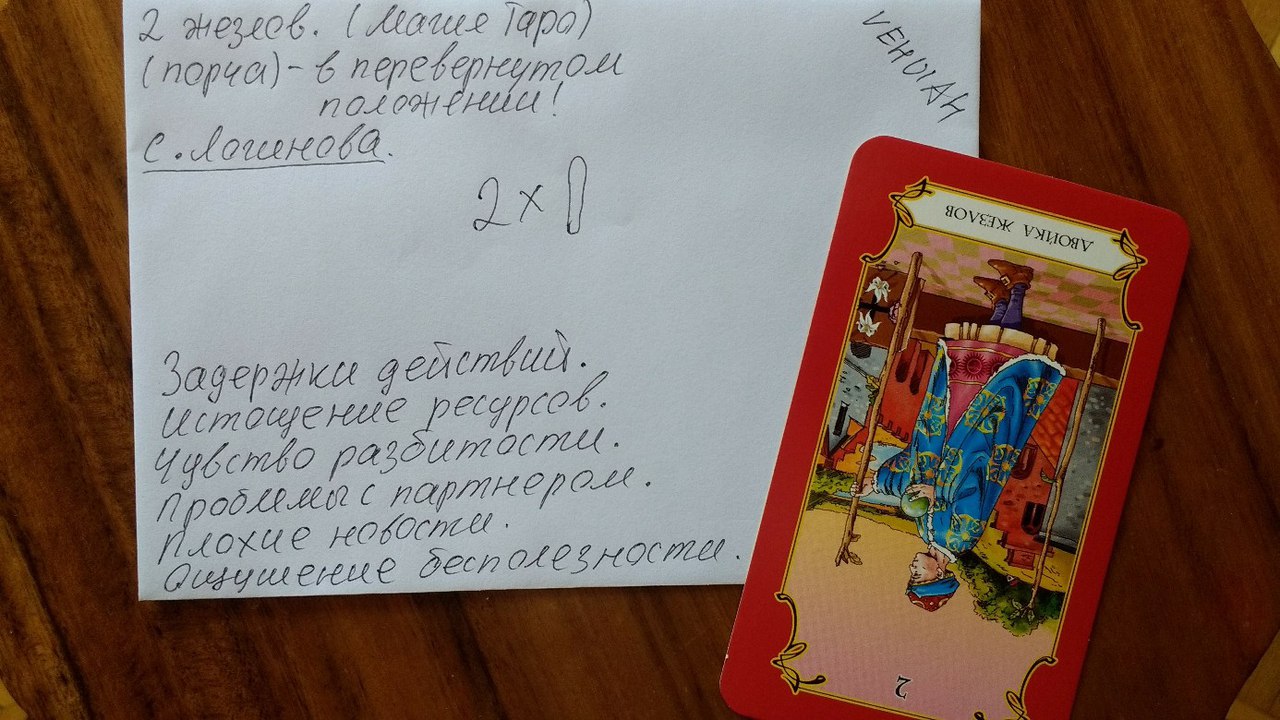 2 жезлов. (Магия Таро)
(порча) - в перевернутом
положении!
С. Логинова.
VEHUIAH
2 х
Задержки действий.
Истощение ресурсов.
Чувство разбитости.
Проблемы с партнером.
Плохие новости.
Ощущение бесполезности.
ДВОЙКА ЖЕЗЛОВ
2